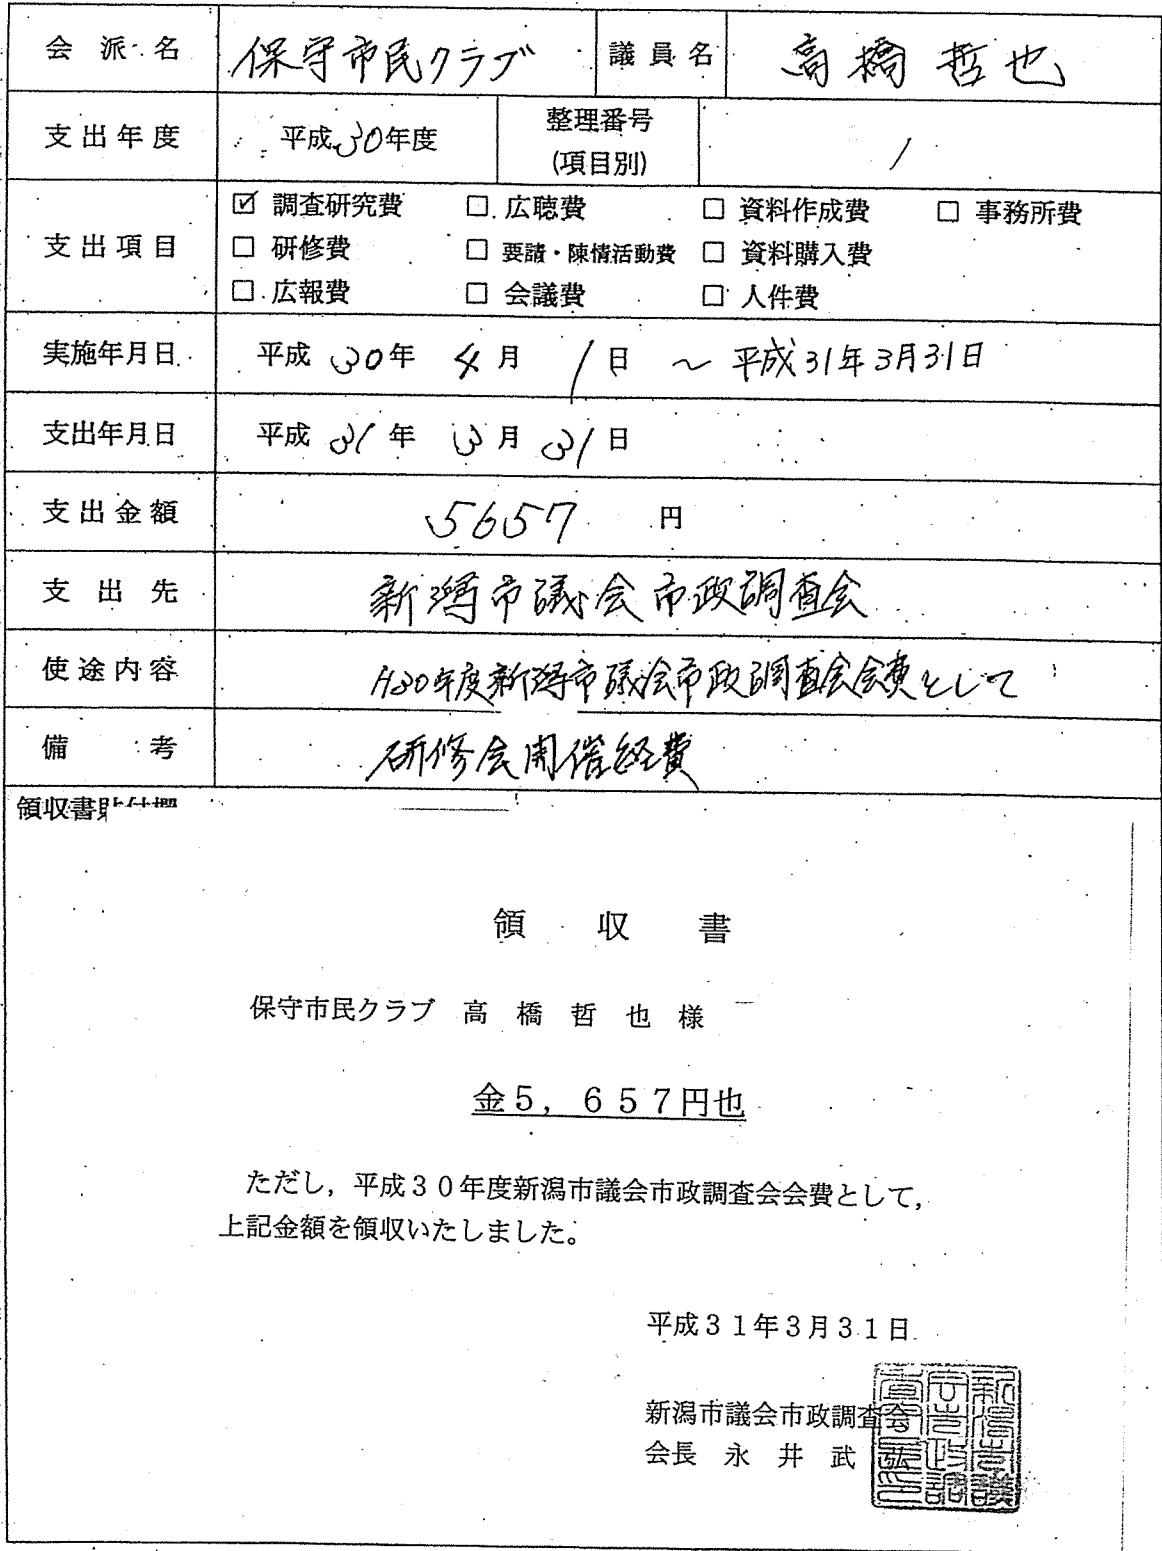 会派名 保守市民クラブ 議員名 高橋哲也
支出年度 平成30年度 整理番号(項目別) 1
支出項目 ☑ 調査研究費 □ 広聴費 □ 資料作成費 □ 事務所費
□ 研修費 □ 要請・陳情活動費 □ 資料購入費
□ 広報費 □ 会議費 □ 人件費
実施年月日 平成30年4月1日 ～ 平成31年3月31日
支出年月日 平成31年3月31日
支出金額 5657 円
支出先 新潟市議会市政調査会
使途内容 H30年度新潟市議会市政調査会会費として
備考 研修会開催経費
領収書貼付欄
領収書
保守市民クラブ 高橋哲也様
金5,657円也
ただし,平成30年度新潟市議会市政調査会会費として,
上記金額を領収いたしました。
平成31年3月31日
新潟市議会市政調査会
会長 永井武弘